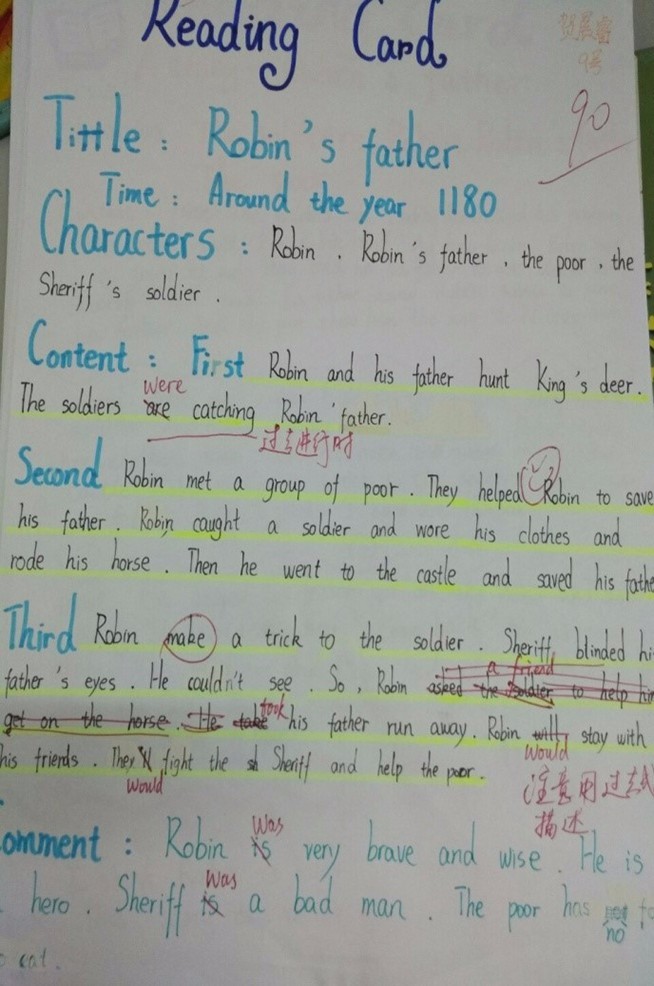 Reading Card
9号
90
Tittle : Robin's father
Time : Around the year 1180
Characters : Robin . Robin's father . the poor . the
Sheriff's soldier .
Content : First Robin and his father hunt King's deer.
were
The soldiers are catching Robin' father.
过去进行时
Second Robin met a group of poor . They helped Robin to save
his father . Robin caught a soldier and wore his clothes and
rode his horse . Then he went to the castle and saved his fathe
Third Robin make a trick to the soldier . Sheriff blinded hi
a friend
father's eyes . He couldn't see . So , Robin asked the soldier to help him
took
get on the horse . He take his father run away. Robin will stay with
would
his friends . They'll fight the Sheriff and help the poor .
would
注意用过去式
描述
was
omment : Robin is very brave and wise . He is
was
hero . Sheriff is a bad man . The poor has not fo
no
o eat .